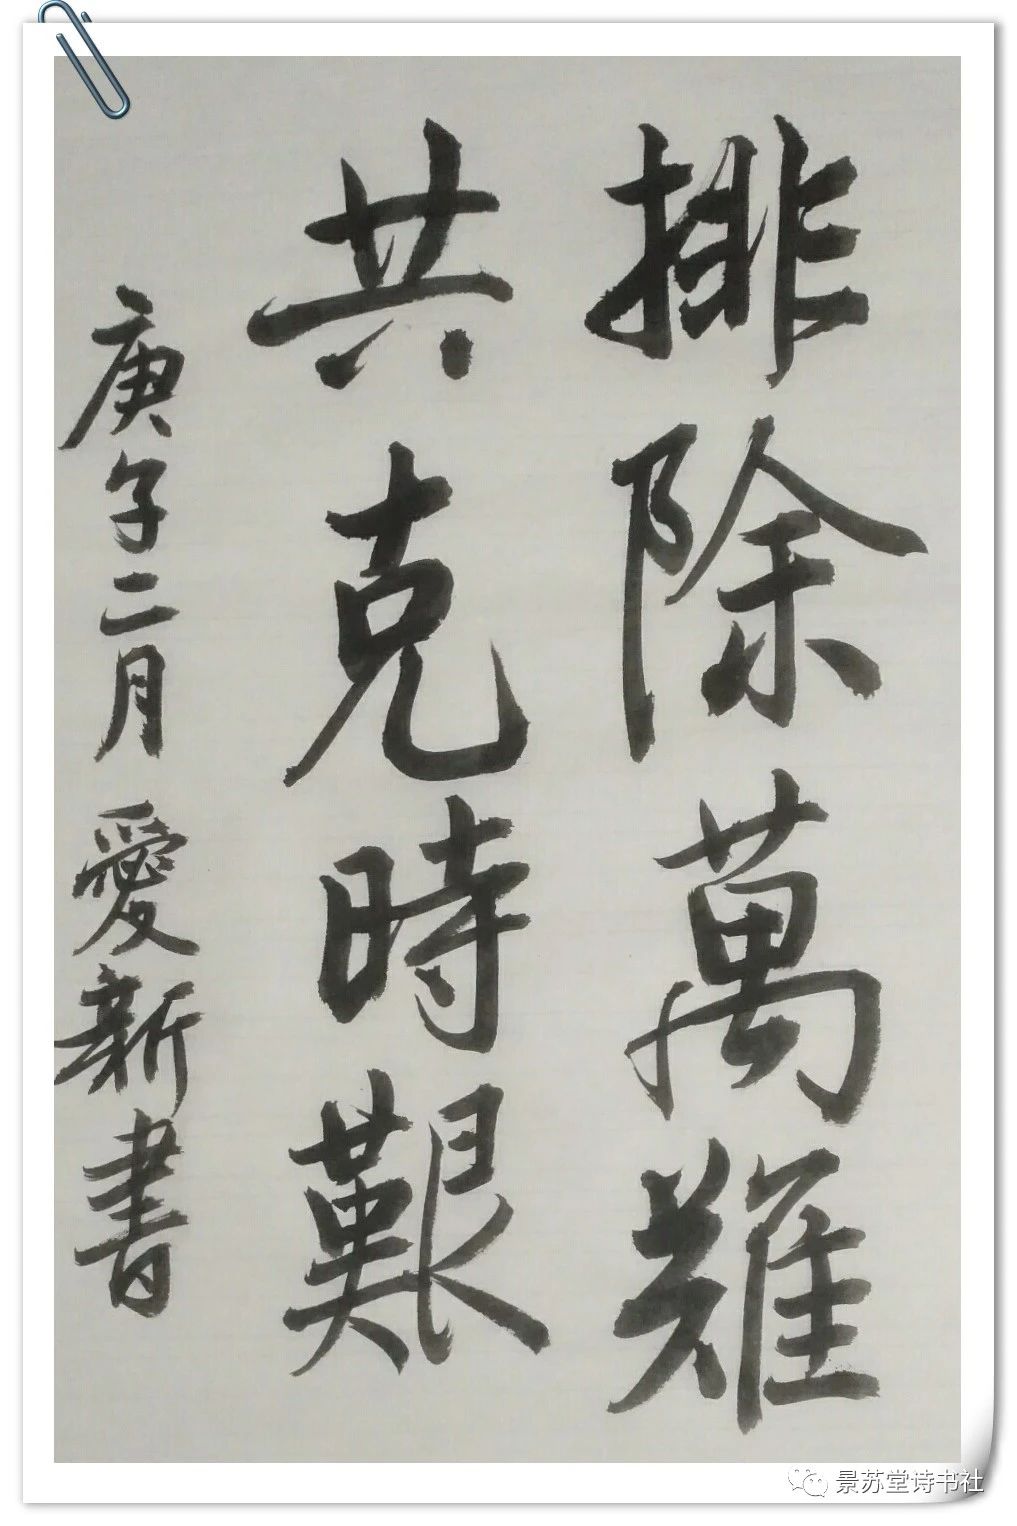 排除萬難
共克時艱
庚子二月愛新書
景苏堂诗书社